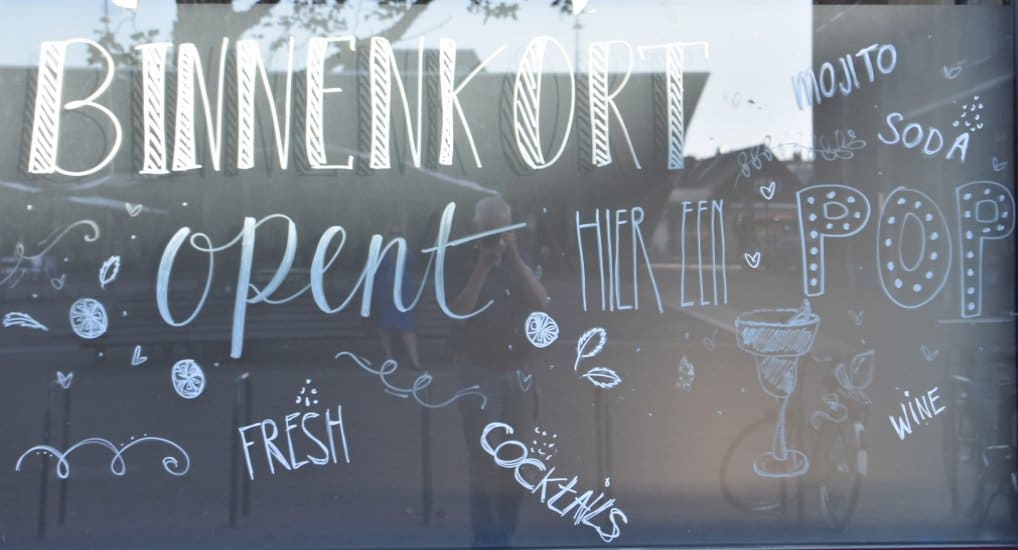 BINNENKORT
opent HIER EEN POP
MOJITO
SODA
FRESH
COCKTAILS
WINE